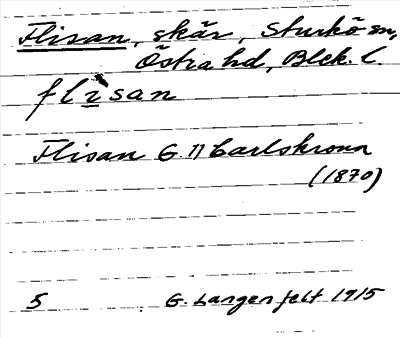 Flisan, skär, Sturkö sn,
Östra hd, Blek. l.
flìsan
Flisan G. 11 Carlskrona
(1870)
5 G. Langenfelt 1915